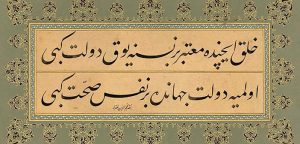 خلق ایچنده معتبر بر نسنه یوق دولت کبی
اولمیه دولت جهانده بر نفس صحت کبی